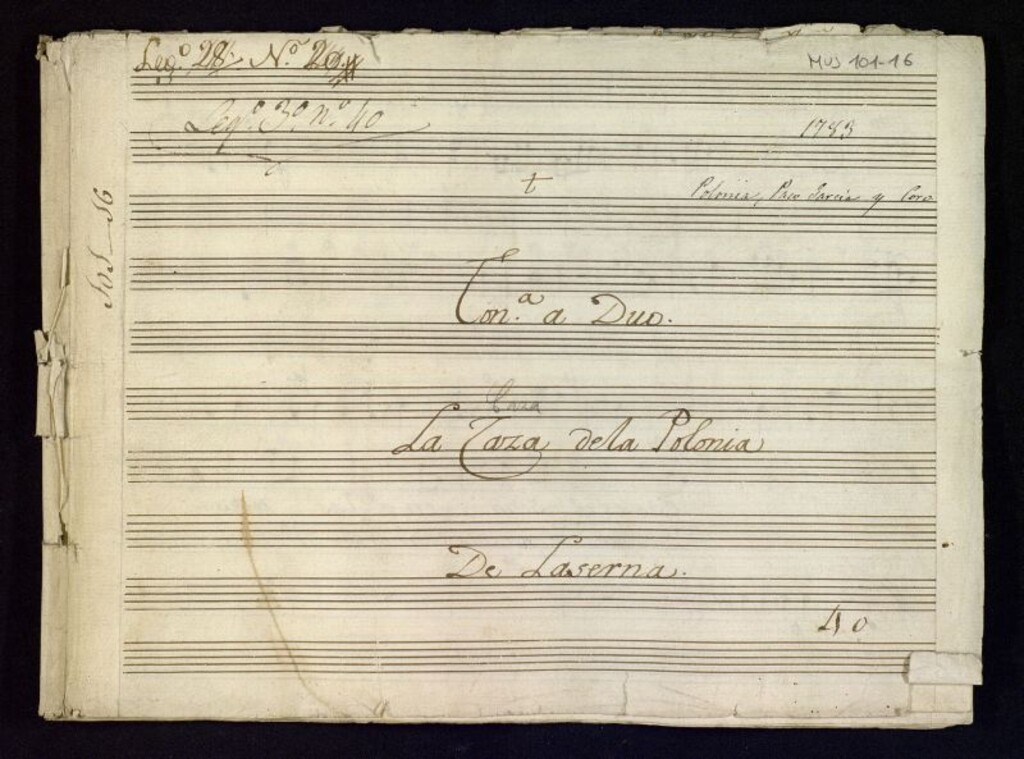 Leg.º 28. N.º 29
MUS 101-16
Leg.º 3º n.º 40
1783
+
Polonia, Paco Garcia y Coro
Ton.ª a Duo.
Caza
La Taza dela Polonia
De Laserna.
40